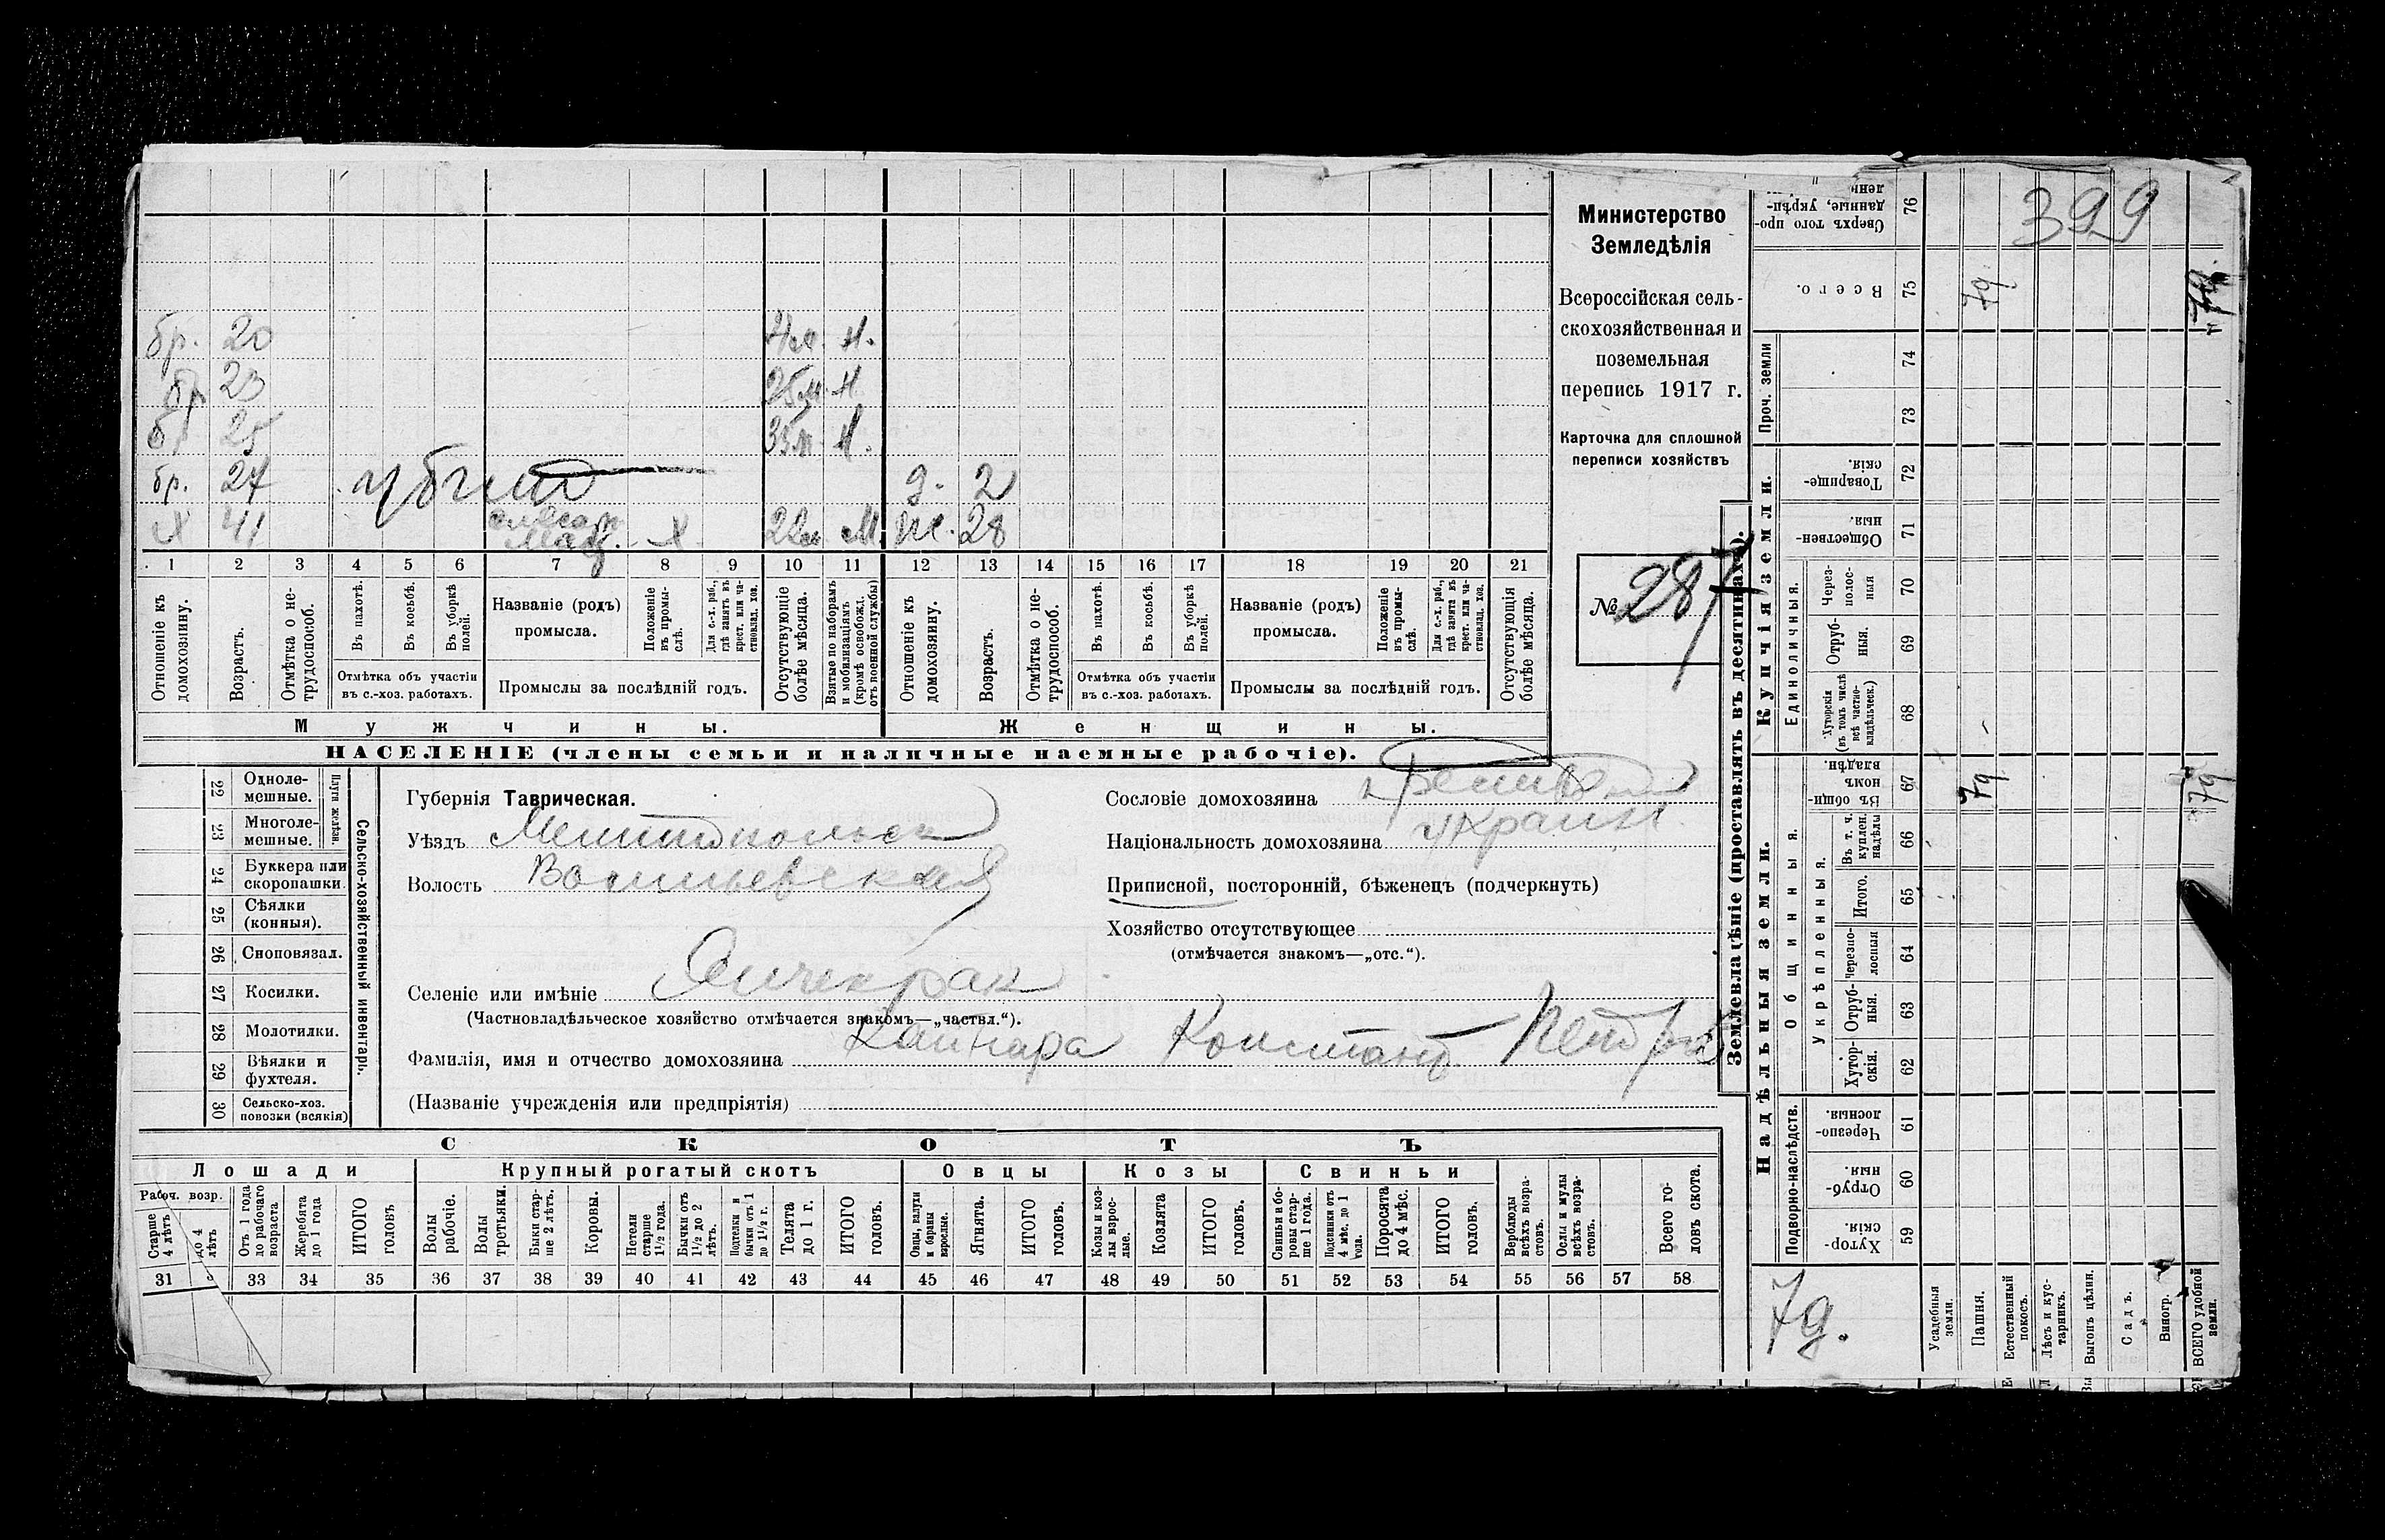 бр. 20 4м. М.
бр. 23 25м. М.
бр 25 35м. М.
бр. 27 убит д. 2
Х 41 слесар. Х 22м. М. ж. 28
1 2 3 4 5 6 7 8 9 10 11 12 13 14 15 16 17 18 19 20 21
Отношеніе къ домохозяину.
Возрастъ.
Отмѣтка о нетрудоспособ.
Въ пахотѣ.
Въ косьбѣ.
Въ уборкѣ полей.
Отмѣтка объ участіи въ с.-хоз. работахъ.
Названіе (родъ) промысла.
Положеніе въ промыслѣ.
Для с.-х. раб., гдѣ занятъ въ крест. или частновлад. хоз.
Промыслы за послѣдній годъ.
Отсутствующіе болѣе мѣсяца.
Взятые по наборамъ и мобилизаціямъ (кромѣ освобожд. отъ военной службы)
Отношеніе къ домохозяину.
Возрастъ.
Отмѣтка о нетрудоспособ.
Въ пахотѣ.
Въ косьбѣ.
Въ уборкѣ полей.
Отмѣтка объ участіи въ с.-хоз. работахъ.
Названіе (родъ) промысла.
Положеніе въ промыслѣ.
Для с.-х. раб., гдѣ занята въ крест. или частновлад. хоз.
Промыслы за послѣдній годъ.
Отсутствующія болѣе мѣсяца.
Мужчины. Женщины.
НАСЕЛЕНІЕ (члены семьи и наличные наемные рабочіе).
Министерство
Земледѣлія
Всероссійская сель-
скохозяйственная и
поземельная
перепись 1917 г.
Карточка для сплошной
переписи хозяйствъ
№ 287
Сельско-хозяйственный инвентарь.
Плуги желѣзн.
22 Однолемешные.
23 Многолемешные.
24 Буккера или скоропашки.
25 Сѣялки (конныя).
26 Сноповязал.
27 Косилки.
28 Молотилки.
29 Вѣялки и фухтеля.
30 Сельско-хоз. повозки (всякія)
Губернія Таврическая.
Уѣздъ Мелитопольск
Волость Васильевская
Селеніе или имѣніе Янчекрак
(Частновладѣльческое хозяйство отмѣчается знакомъ—„частвл.“).
Фамилія, имя и отчество домохозяина Кайнара Констант. Петров
(Названіе учрежденія или предпріятія)
Сословіе домохозяина
Національность домохозяина украин.
Приписной, посторонній, бѣженецъ (подчеркнуть)
Хозяйство отсутствующее
(отмѣчается знакомъ—„отс.“).
СКОТЪ
Лошади Крупный рогатый скотъ Овцы Козы Свиньи
Рабоч. возр.
Старше 4 лѣтъ
до 4 лѣтъ
Отъ 1 года до рабочаго возраста
Жеребята до 1 года
ИТОГО головъ
Волы рабочіе.
Волы третьяки.
Быки старше 2 лѣтъ.
Коровы.
Нетели старше 1½ года.
Бычки отъ 1½ до 2 лѣтъ.
Подтелки и бычки отъ 1 до 1½ г.
Телята до 1 г.
ИТОГО головъ.
Овцы, валухи и бараны взрослые.
Ягнята.
ИТОГО головъ.
Козы и козлы взрослые.
Козлята
ИТОГО головъ.
Свиньи и боровы старше 1 года.
Подсвинки отъ 4 мѣс. до 1 года.
Поросята до 4 мѣс.
ИТОГО головъ.
Верблюды всѣхъ возрастовъ.
Ослы и мулы всѣхъ возрастовъ.
Всего головъ скота.
31 33 34 35 36 37 38 39 40 41 42 43 44 45 46 47 48 49 50 51 52 53 54 55 56 57 58
Землевладѣніе (проставлять въ десятинахъ).
Надѣльныя земли. Купчія земли. Проч. земли
Подворно-наслѣдств.
Общинныя.
Укрѣпленныя.
Единоличныя.
59 Хуторскія
60 Отрубныя.
61 Черезполосныя.
62 Хуторскія.
63 Отрубныя.
64 Черезполосныя
65 Итого.
66 Въ т. ч. куплен. надѣлы
67 Въ общинномъ владѣн.
68 Хуторскія (въ томъ числѣ всѣ частновладѣльческ.)
69 Отрубныя.
70 Черезполосныя
71 Общественныя.
72 Товарищескія.
73
74
75 Всего.
76 Сверхъ того проданныя, укрѣплен.
399
7д. 7д.
7д 7д
7д.
Усадебныя земли.
Пашня.
Естественный покосъ.
Лѣсъ и кустарникъ.
Выгонъ цѣлин.
Садъ.
Виногр.
ВСЕГО удобной земли.